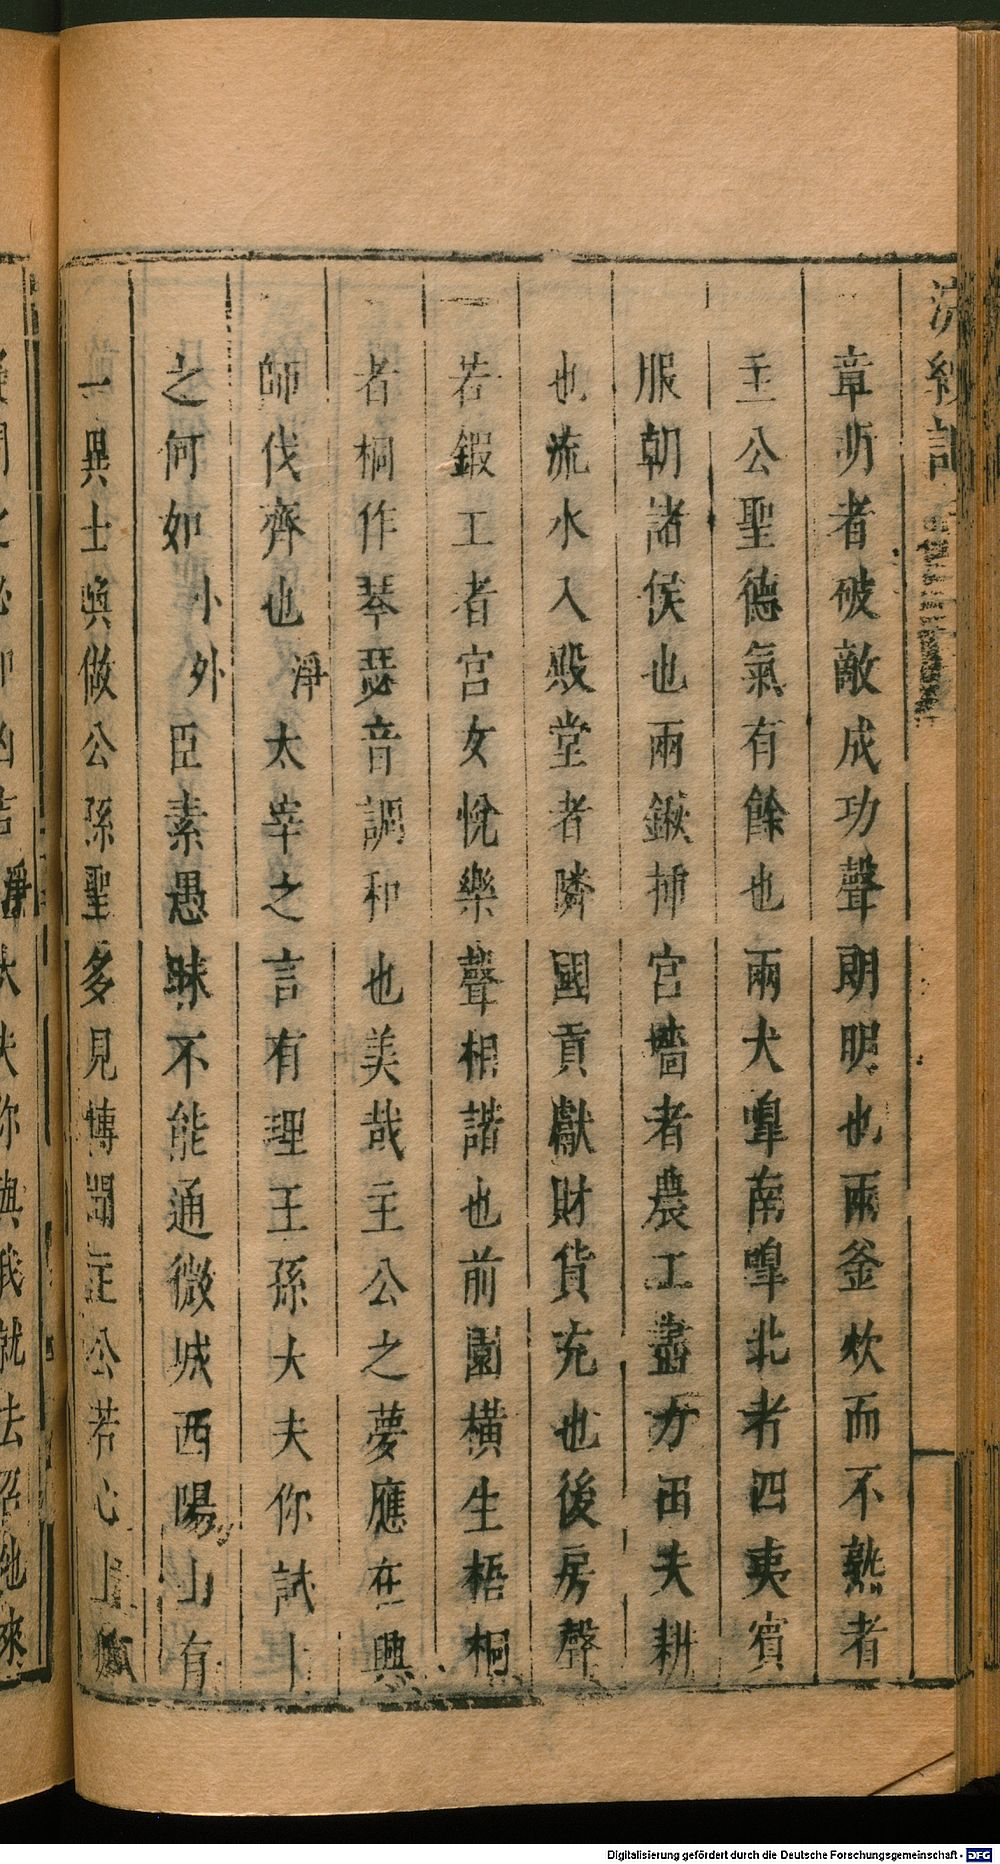 浣紗記
章明者破敵成功聲聞朗明也兩釜炊而不熟者
主公聖德氣有餘也兩犬嘷南嘷北者四夷賓
服朝諸侯也兩鍬挿宮墻者農工盡力田夫耕
也流水入殿堂者隣國貢獻財貨充也後房聲
若鍜工者宮女悅樂聲相諧也前園橫生梧桐
者桐作琴瑟音調和也美哉主公之夢應在興
師伐齊也淨太宰之言有理王孫大夫你試卜
之何如小外臣素愚昧不能通微城西陽山有
一異士喚做公孫聖多見博聞主公若心上
你與我就去召他來
Digitalisierung gefördert durch die Deutsche Forschungsgemeinschaft - DFG